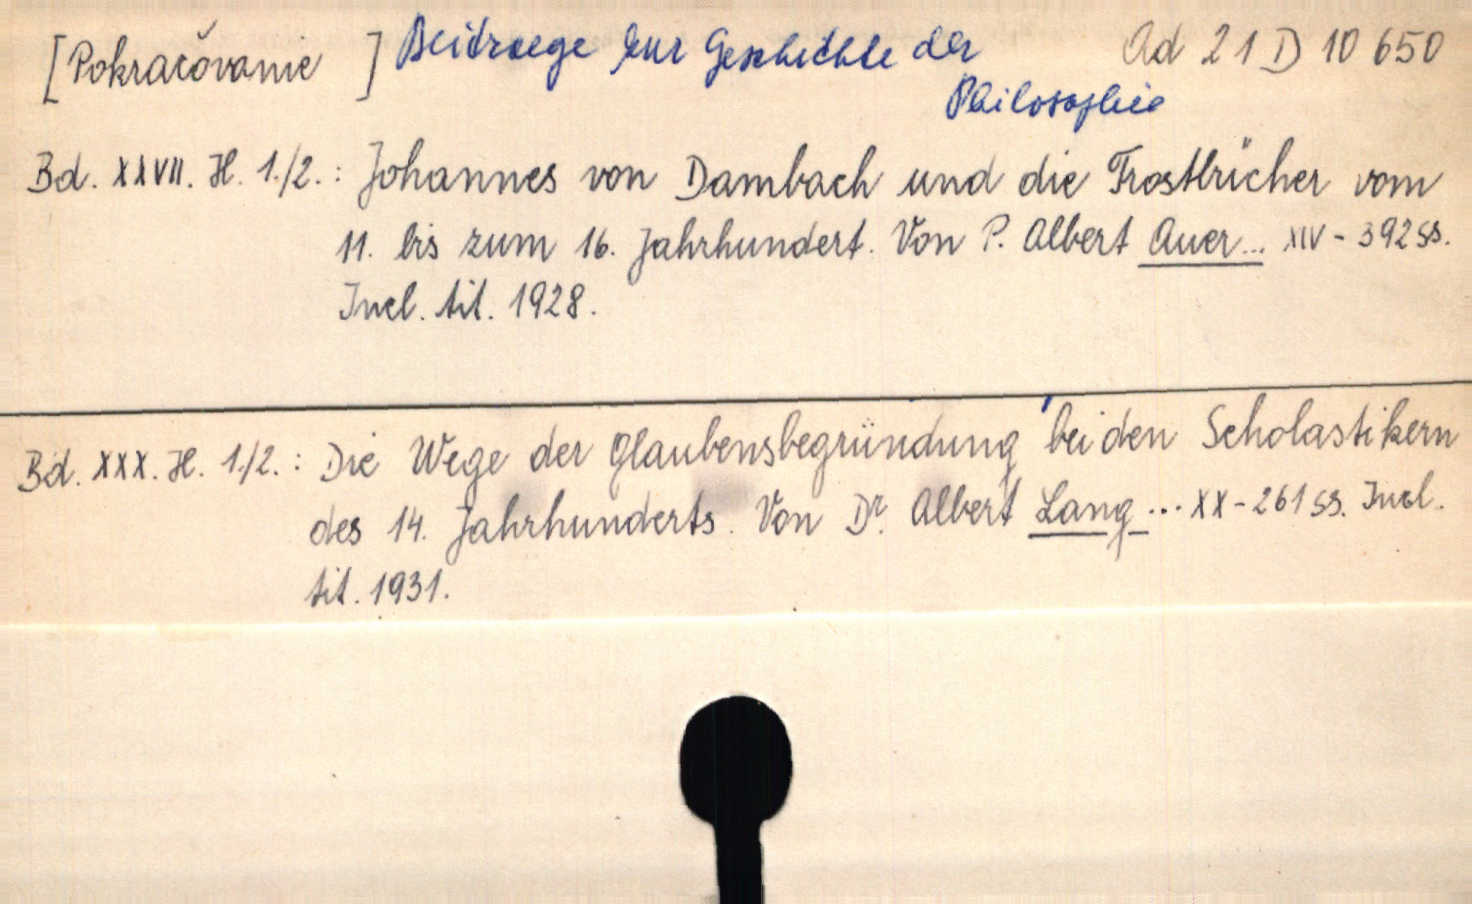 [Pokračovanie ] Beitraege zur Geschichte der Ad 21 D 10 650
Philosophie
Bd. XXVII. H. 1./2.: Johannes von Dambach und die Trostbücher vom
11. bis zum 16. Jahrhundert. Von P. Albert Auer... XIV - 392 ss.
Incl. tit. 1928.
Bd. XXX. H. 1./2.: Die Wege der Glaubensbegründung bei den Scholastikern
des 14. Jahrhunderts. Von Dr. Albert Lang... XX - 261 ss. Incl.
tit. 1931.